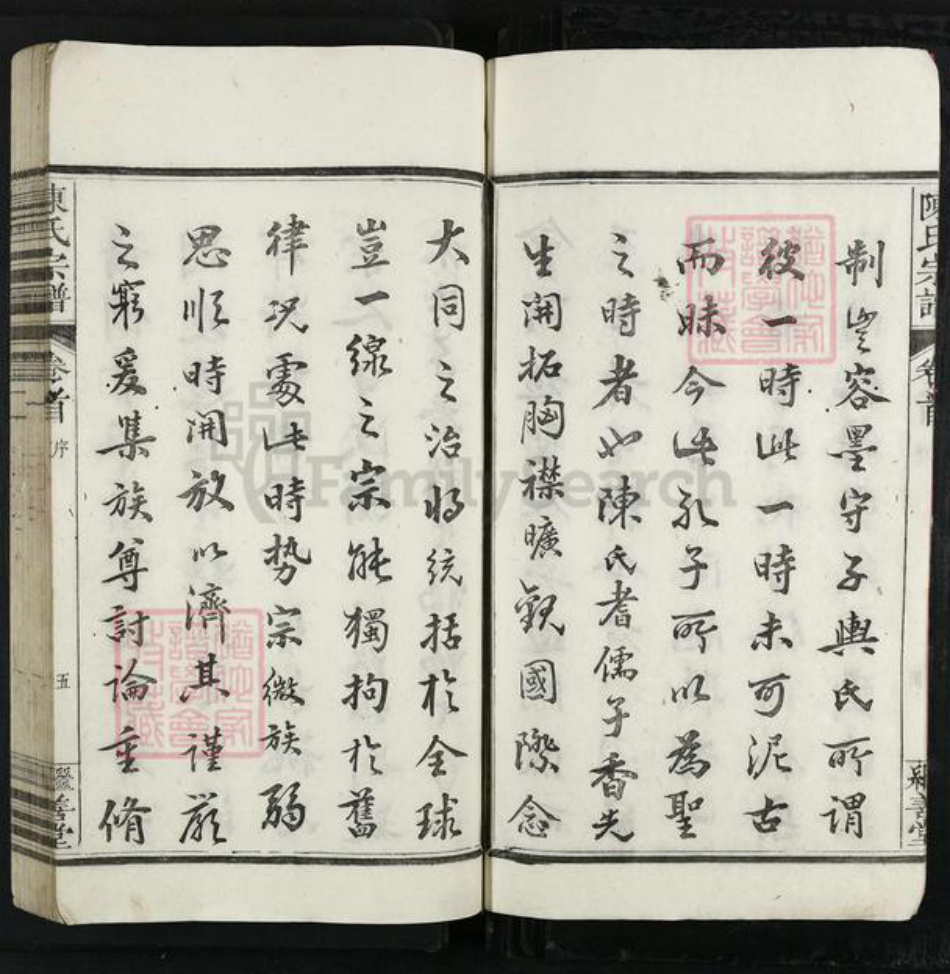 制豈容墨守子輿氏所謂
彼一時此一時未可泥古
而昧今此孔子所以為聖
之時者也陳氏耆儒子香先
生開拓胸襟曠觀國際念
大同之治將統括於全球
豈一線之宗能獨拘於舊
律況處此時勢宗微族弱
思順時開放以濟其謹嚴
之窮爰集族尊討論重脩
陳氏宗譜
卷首
序
五
善堂
陳氏宗譜
卷首
善堂
FamilySearch